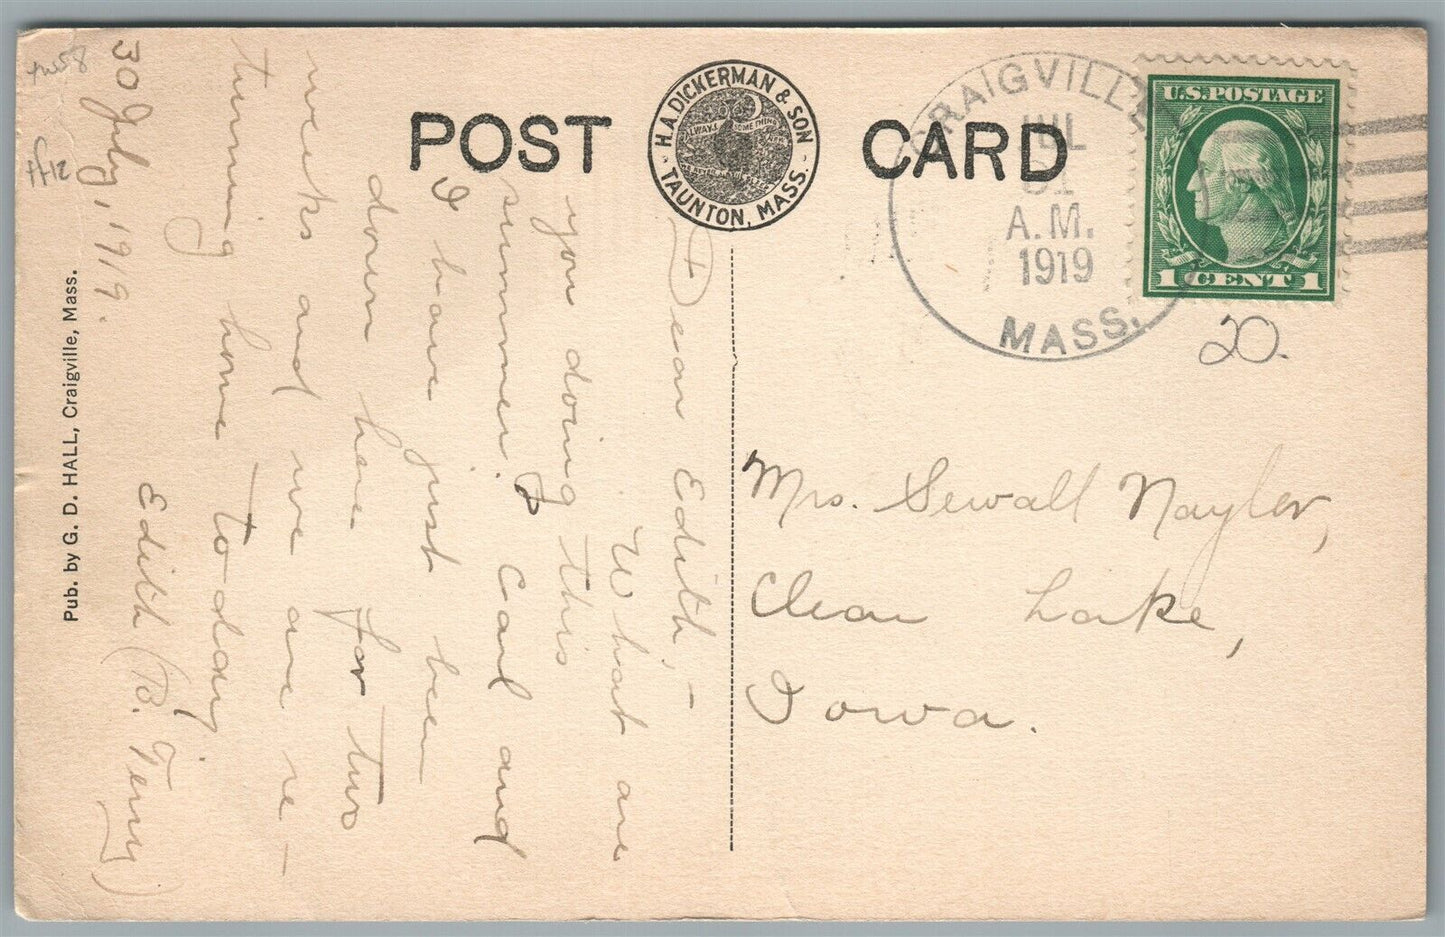 POST CARD
H.A. DICKERMAN & SON
TAUNTON, MASS.
ALWAYS SOMETHING
CRAIGVILLE
JUL
31
A.M.
1919
MASS.
U.S. POSTAGE
1 CENT 1
20.
tw58
tf12
Pub. by G. D. HALL, Craigville, Mass.
30 July, 1919.
Dear Edith,-
What are
you doing this
summer? Carl and
I have just been
down here for two
weeks and we are re-
turning home to-day
Edith (B. Terry)
Mrs. Sewall Naylor,
Clear Lake,
Iowa.